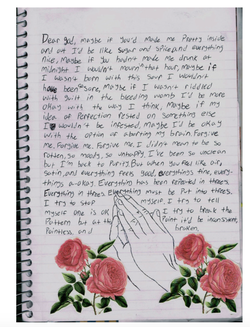 Dear god, maybe if you'd made me pretty inside
and out I'd be like sugar and spice and everything
nice, maybe if you hadn't made me drunk at
midnight I wouldn't mourn that hour, maybe if
I wasn't born with this soup I wouldn't
have been sore, maybe if I wasn't riddled
with guilt in the bleeding words I'd be more
okay with the way I think, maybe if my
idea of perfection rested on something else
I wouldn't be infested, maybe I'd be okay
with the option of burning my brain. forgive
me, forgive me, forgive me, I didn't mean to be so
rotten, so needy, so unhappy I've been so unclean
but I'm back to purity. Pau when you feel like air,
satin, and everything feels good. everythings fine, every-
things a-okay. Everything has been repeated in threes.
Everything in threes. everything must be put into threes.
I try to stop myself, I try to tell
myself one is ok I try to break the
pattern but at this point i'd be inhumane,
pointless, and broken.